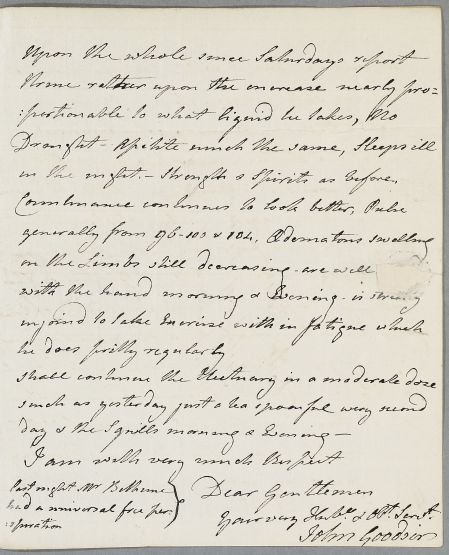 Upon the whole since Saturdays report
Urine rather upon the increase nearly pro=
:portionable to what liquid he takes, No
Draught - Apetite much the same, Sleeps ill
in the night. - Strength & Spirits as before,
Countinance continues to look better, Pulse
generally from 96-103 & 104. Œdematous swelling
on the Limbs still decreasing - are well
with the hand morning & Evening - is
injoind to take Exercise within fatigue which
he does pritty regularly
shall continue the Electuary in a moderate dose
such as yesterday just a tea spoonful every second
day & the Squills morning & Evening -
I am with very much Respect
Dear Gentlemen
Your very Hu:ble & Obt. Servt.
John Goodsir
Last night Mr Bethune
had a universal free per
:spiration